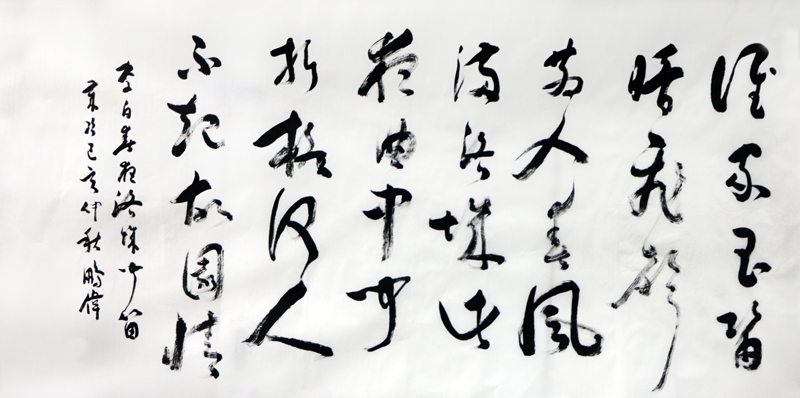 誰家玉笛
暗飛聲
散入春風
滿洛城此
夜曲中聞
折柳何人
不起故園情
李白春夜洛城聞笛
於己亥仲秋鵬偉